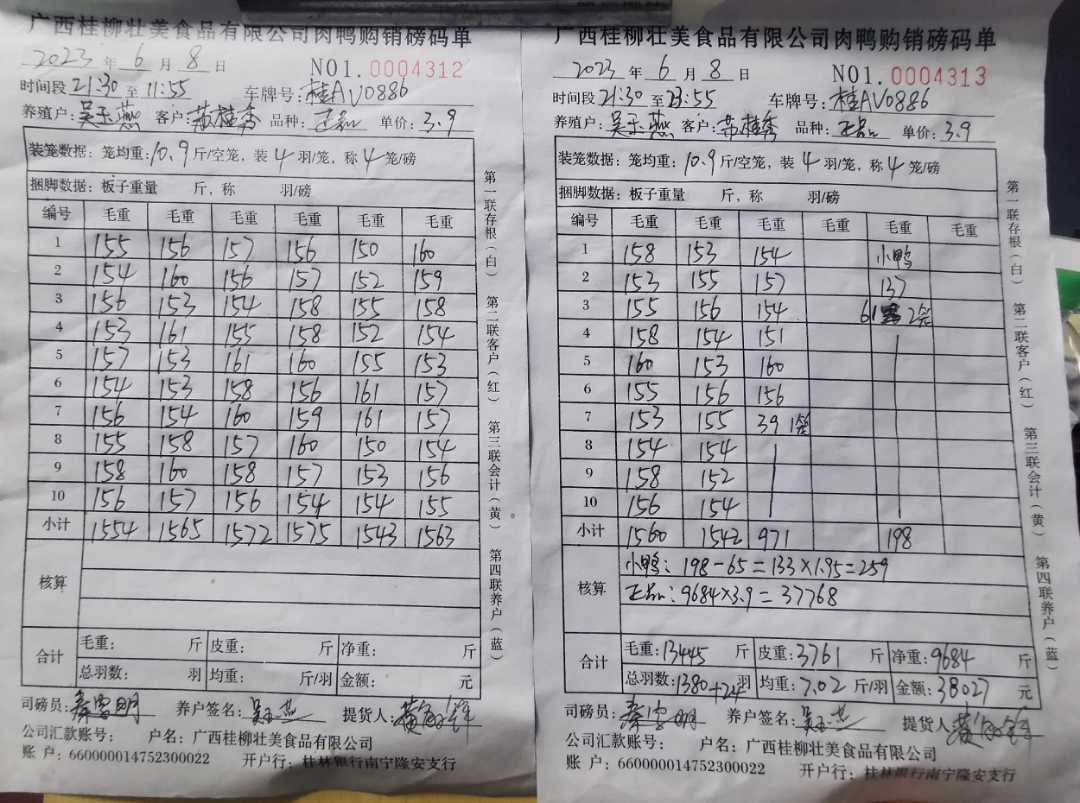 广西桂柳壮美食品有限公司肉鸭购销磅码单
2023 年 6 月 8 日 NO1.0004312
时间段 21:30 至 11:55 车牌号: 桂AV0886
养殖户: 吴玉燕 客户: 苏桂秀 品种: 正品 单价: 3.9
装笼数据: 笼均重: 10.9 斤/空笼, 装 4 羽/笼, 称 4 笼/磅
捆脚数据: 板子重量 斤, 称 羽/磅
编号 毛重 毛重 毛重 毛重 毛重 毛重
1 155 156 157 156 150 160
2 154 160 156 157 152 159
3 156 153 154 158 155 158
4 153 161 155 158 152 154
5 157 153 161 160 155 153
6 154 153 158 156 161 157
7 156 154 160 159 161 157
8 155 158 157 160 150 154
9 158 160 158 157 153 156
10 156 157 156 154 154 155
小计 1554 1565 1572 1575 1543 1563
核算
合计 毛重: 斤 皮重: 斤 净重: 斤
总羽数: 羽 均重: 斤/羽 金额: 元
司磅员: 养户签名: 吴玉燕 提货人:
公司汇款账号: 户名: 广西桂柳壮美食品有限公司
账 户: 660000014752300022 开户行: 桂林银行南宁隆安支行
第一联存根(白) 第二联客户(红) 第三联会计(黄) 第四联养户(蓝)
广西桂柳壮美食品有限公司肉鸭购销磅码单
2023 年 6 月 8 日 NO1.0004313
时间段 21:30 至 23:55 车牌号: 桂AV0886
养殖户: 吴玉燕 客户: 苏桂秀 品种: 正品 单价: 3.9
装笼数据: 笼均重: 10.9 斤/空笼, 装 4 羽/笼, 称 4 笼/磅
捆脚数据: 板子重量 斤, 称 羽/磅
编号 毛重 毛重 毛重 毛重 毛重 毛重
1 158 153 154 小鸭
2 153 155 157 137
3 155 156 154 61 2笼
4 158 154 151
5 160 153 160
6 155 156 156
7 153 155 39 1笼
8 154 154
9 158 152
10 156 154
小计 1560 1542 971 198
核算 小鸭: 198-65=133×1.95=259
正品: 9684×3.9=37768
合计 毛重: 13445 斤 皮重: 3761 斤 净重: 9684 斤
总羽数: 1380+24羽 均重: 7.02 斤/羽 金额: 38027 元
司磅员: 养户签名: 吴玉燕 提货人:
公司汇款账号: 户名: 广西桂柳壮美食品有限公司
账 户: 660000014752300022 开户行: 桂林银行南宁隆安支行
第一联存根(白) 第二联客户(红) 第三联会计(黄) 第四联养户(蓝)